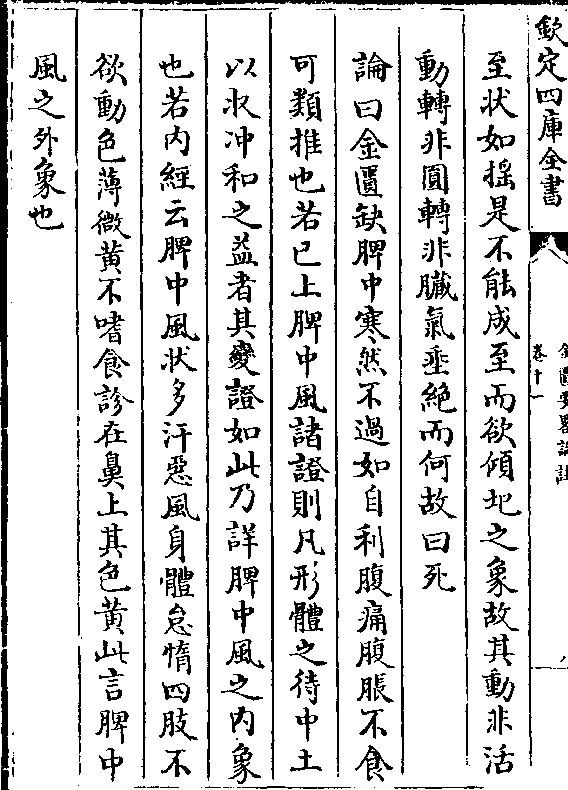 欽定四庫全書
金匱要畧論註
卷十一
八
至状如揺是不能成至而欲傾圯之象故其動非活
動轉非圓轉非臓氣垂絶而何故曰死
論曰金匱缺脾中寒然不過如自利腹痛腹脹不食
可類推也若已上脾中風諸證則凡形體之待中土
以収冲和之益者其變證如此乃詳脾中風之内象
也若内經云脾中風状多汗惡風身體怠惰四肢不
欲動色薄微黄不嗜食診在鼻上其色黄此言脾中
風之外象也